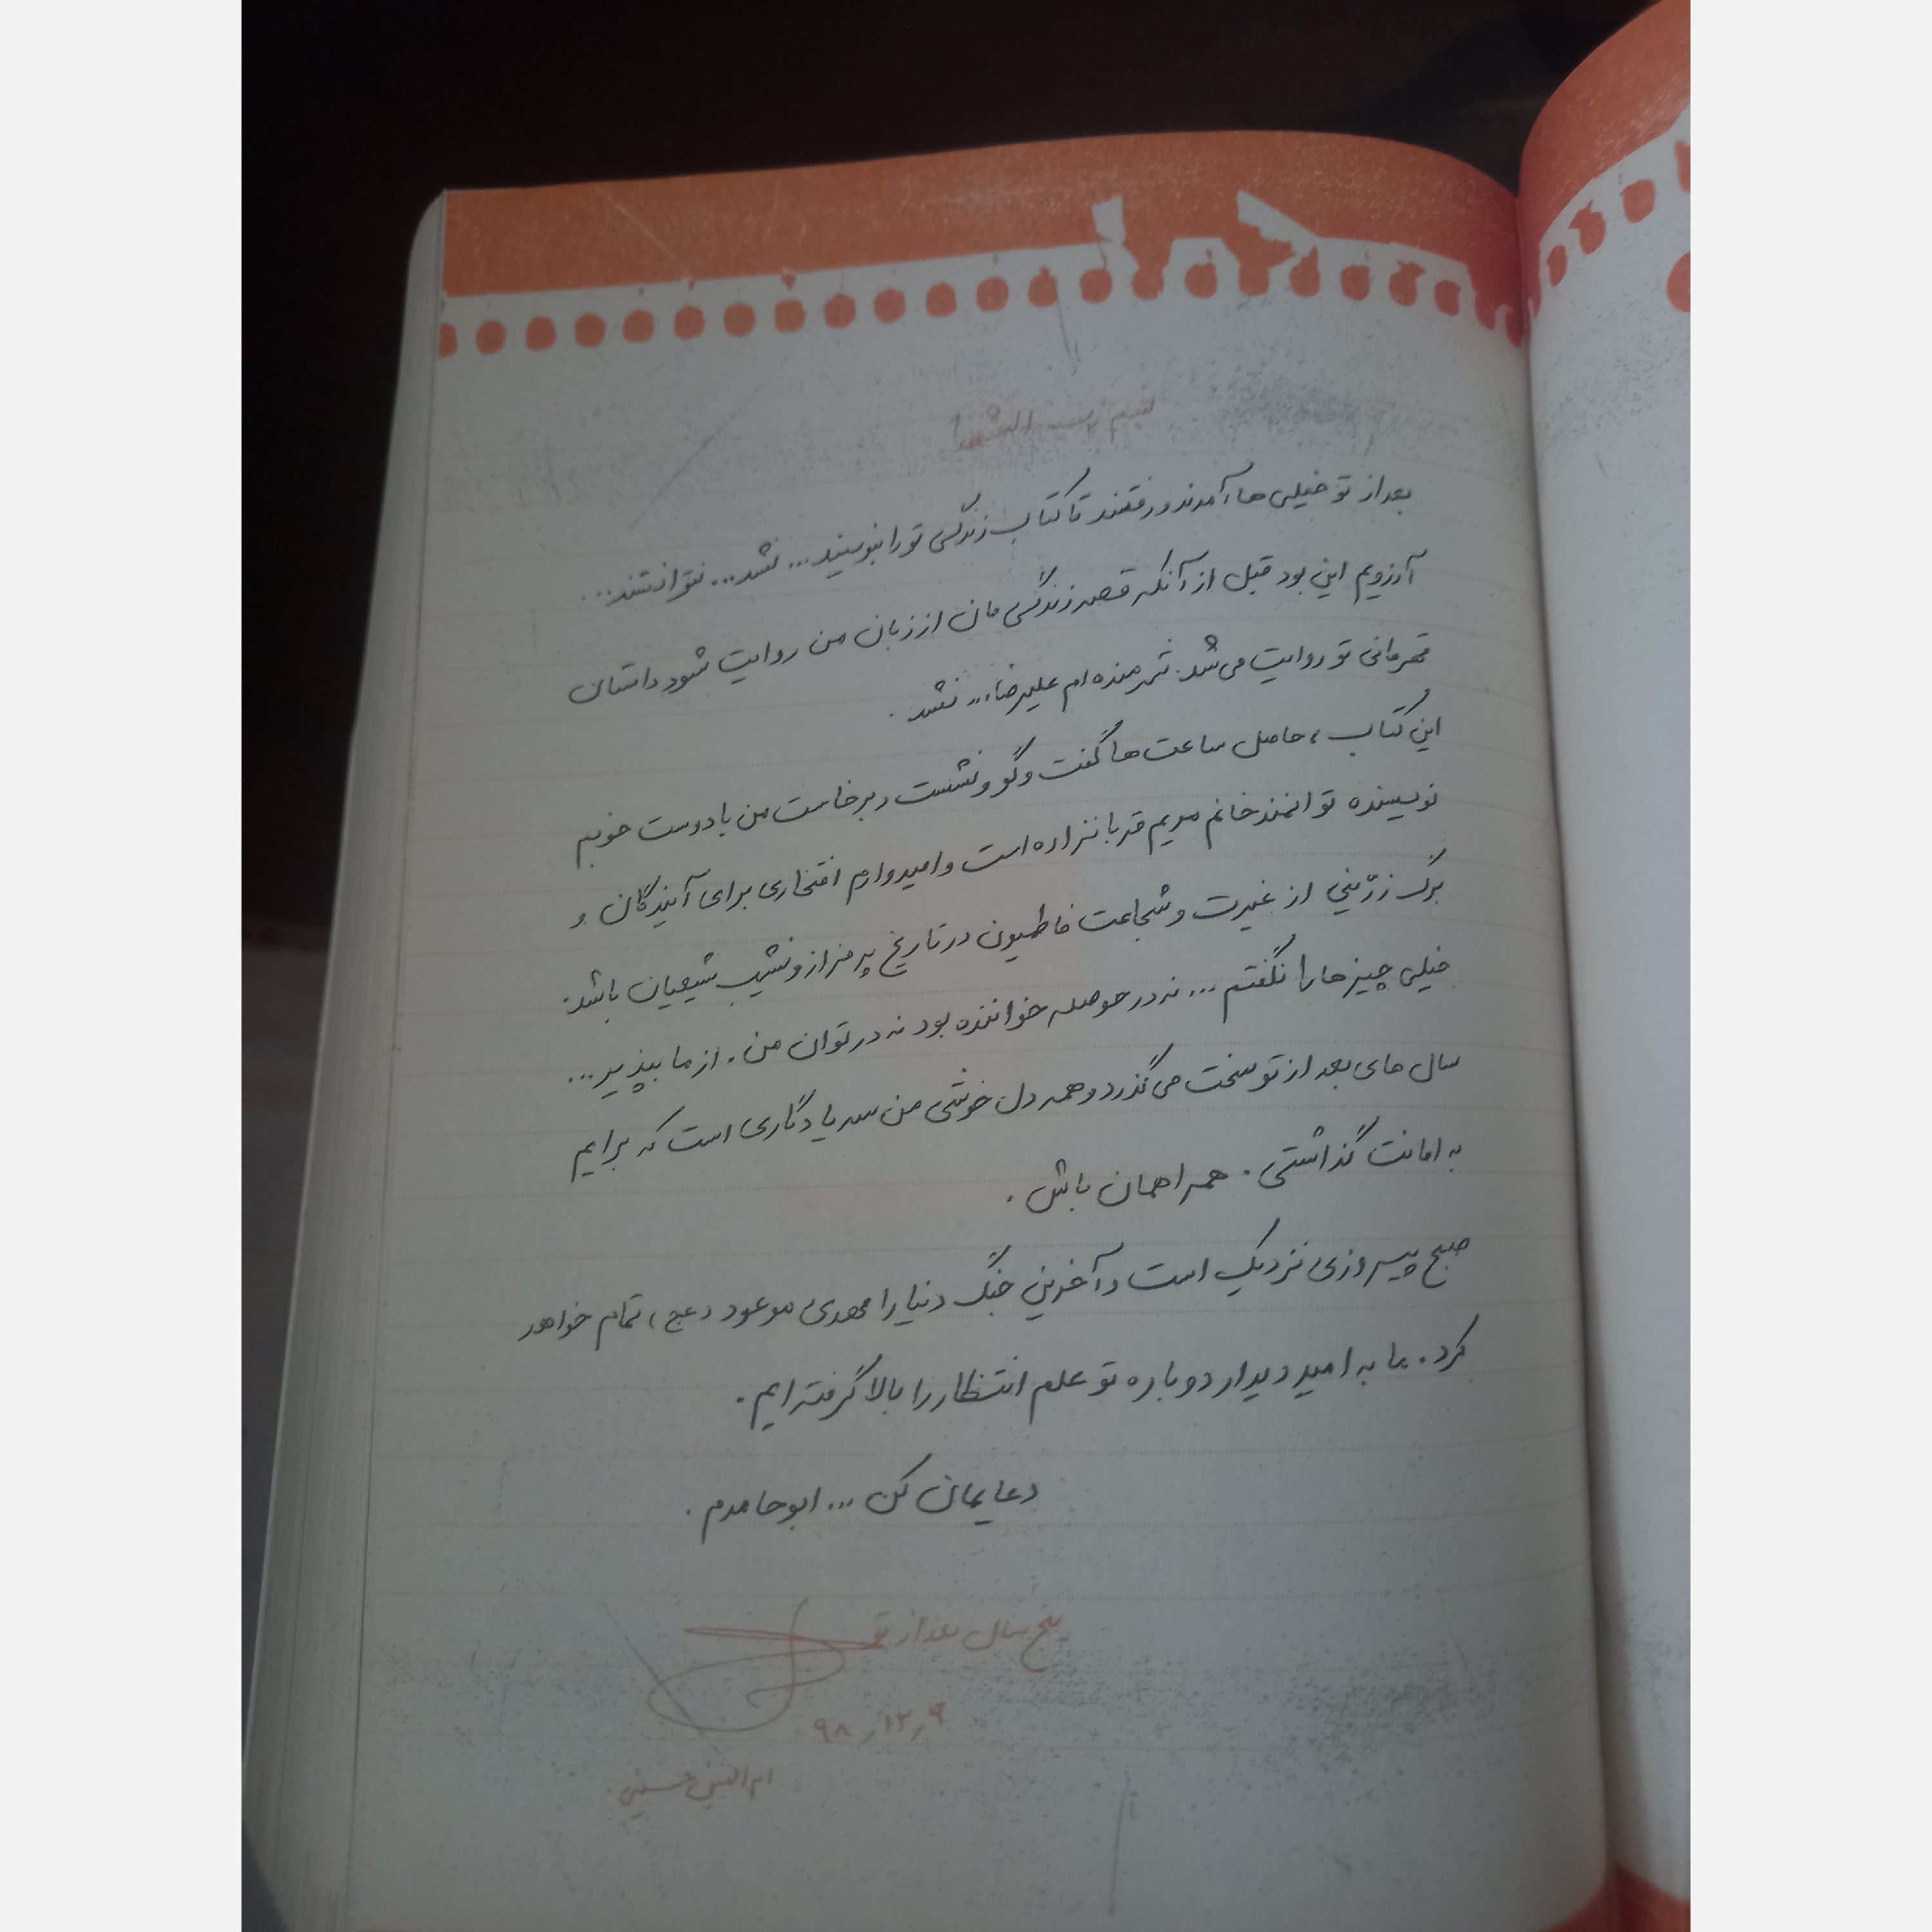 بسم رب الشهدا
بعد از تو خیلی ها آمدند و رفتند تا کتاب زندگی تو را بنویسند... نشد... نتوانستند...
آرزویم این بود قبل از آنکه قصه زندگی مان از زبان من روایت شود داستان
قهرمانی تو روایت می شد. شرمنده ام علیرضا... نشد.
این کتاب، حاصل ساعت ها گفت و گو و نشست و برخاست من با دوست خوبم
نویسنده توانمند خانم مریم قربانزاده است و امیدوارم افتخاری برای آیندگان و
برگ زرّینی از غیرت و شجاعت فاطمیون در تاریخ پر فراز و نشیب شیعیان باشد.
خیلی چیزها را نگفتم... نه در حوصله خواننده بود نه در توان من. از ما بپذیر...
سال های بعد از تو سخت می گذرد و همه دل خوشی من سه یادگاری است که برایم
به امانت گذاشتی. همراهمان باش.
صبح پیروزی نزدیک است و آخرین جنگ دنیا را مهدی موعود (عج) تمام خواهد
کرد. ما به امید دیدار دوباره تو علم انتظار را بالا گرفته ایم.
دعایمان کن... ابوحامدم.
پنج سال بعد از تو
۹۸/۱۲/۹
ام البنین حسینی